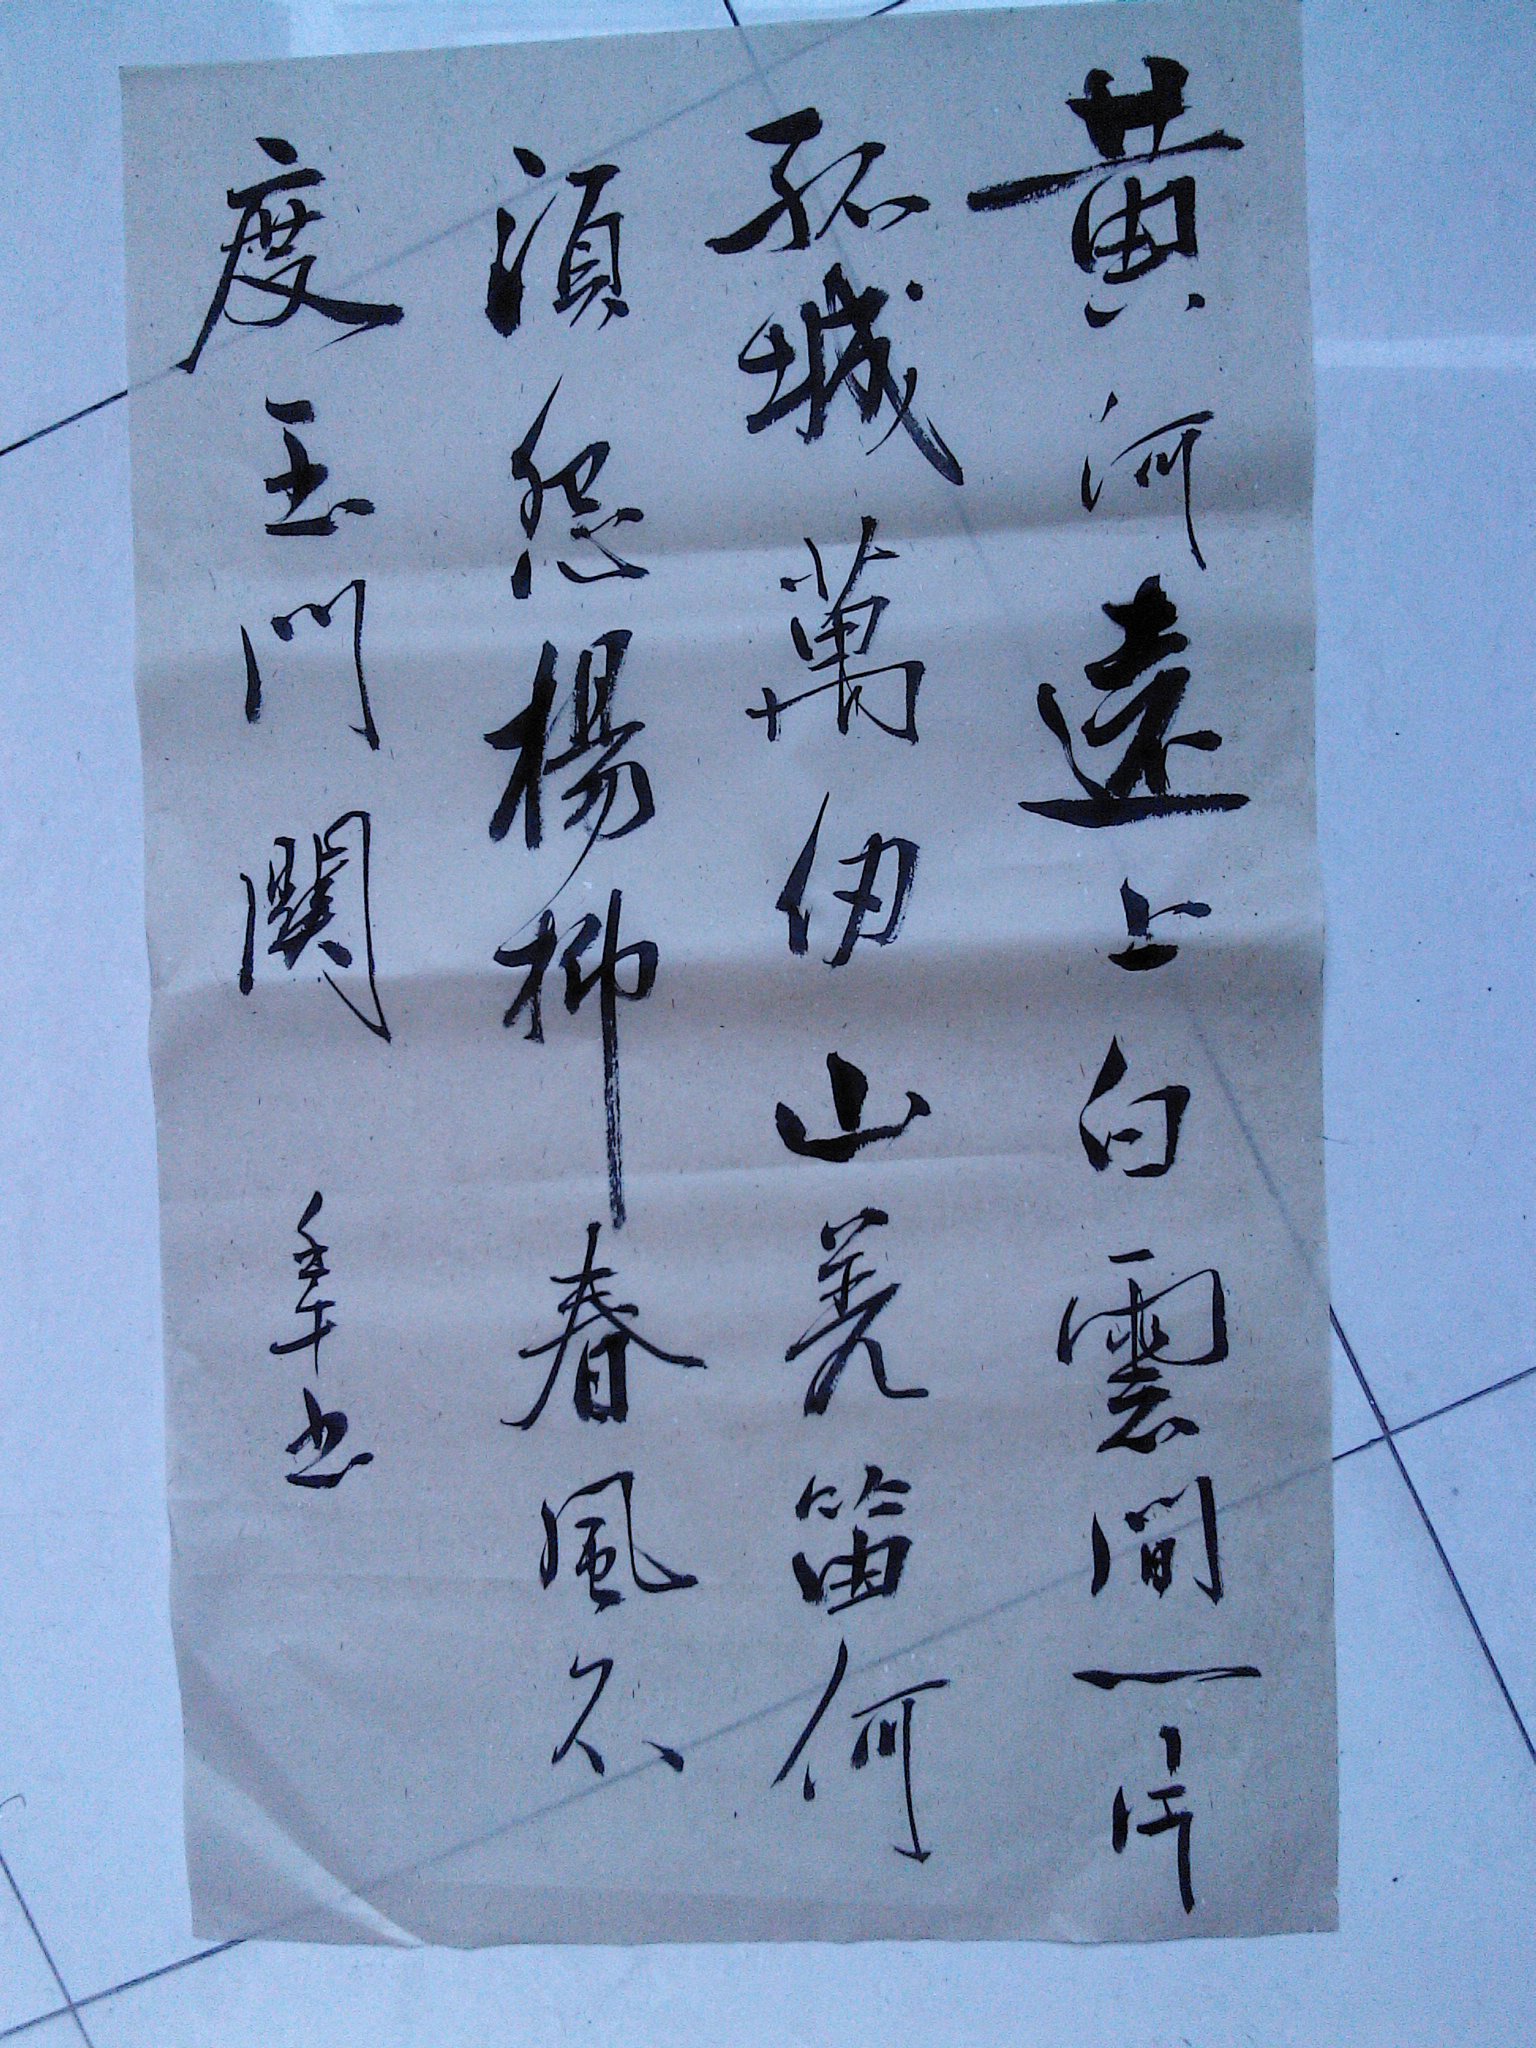 黄河遠上白雲間一片
孤城萬仞山羌笛何
須怨楊柳春風不
度玉門関
書